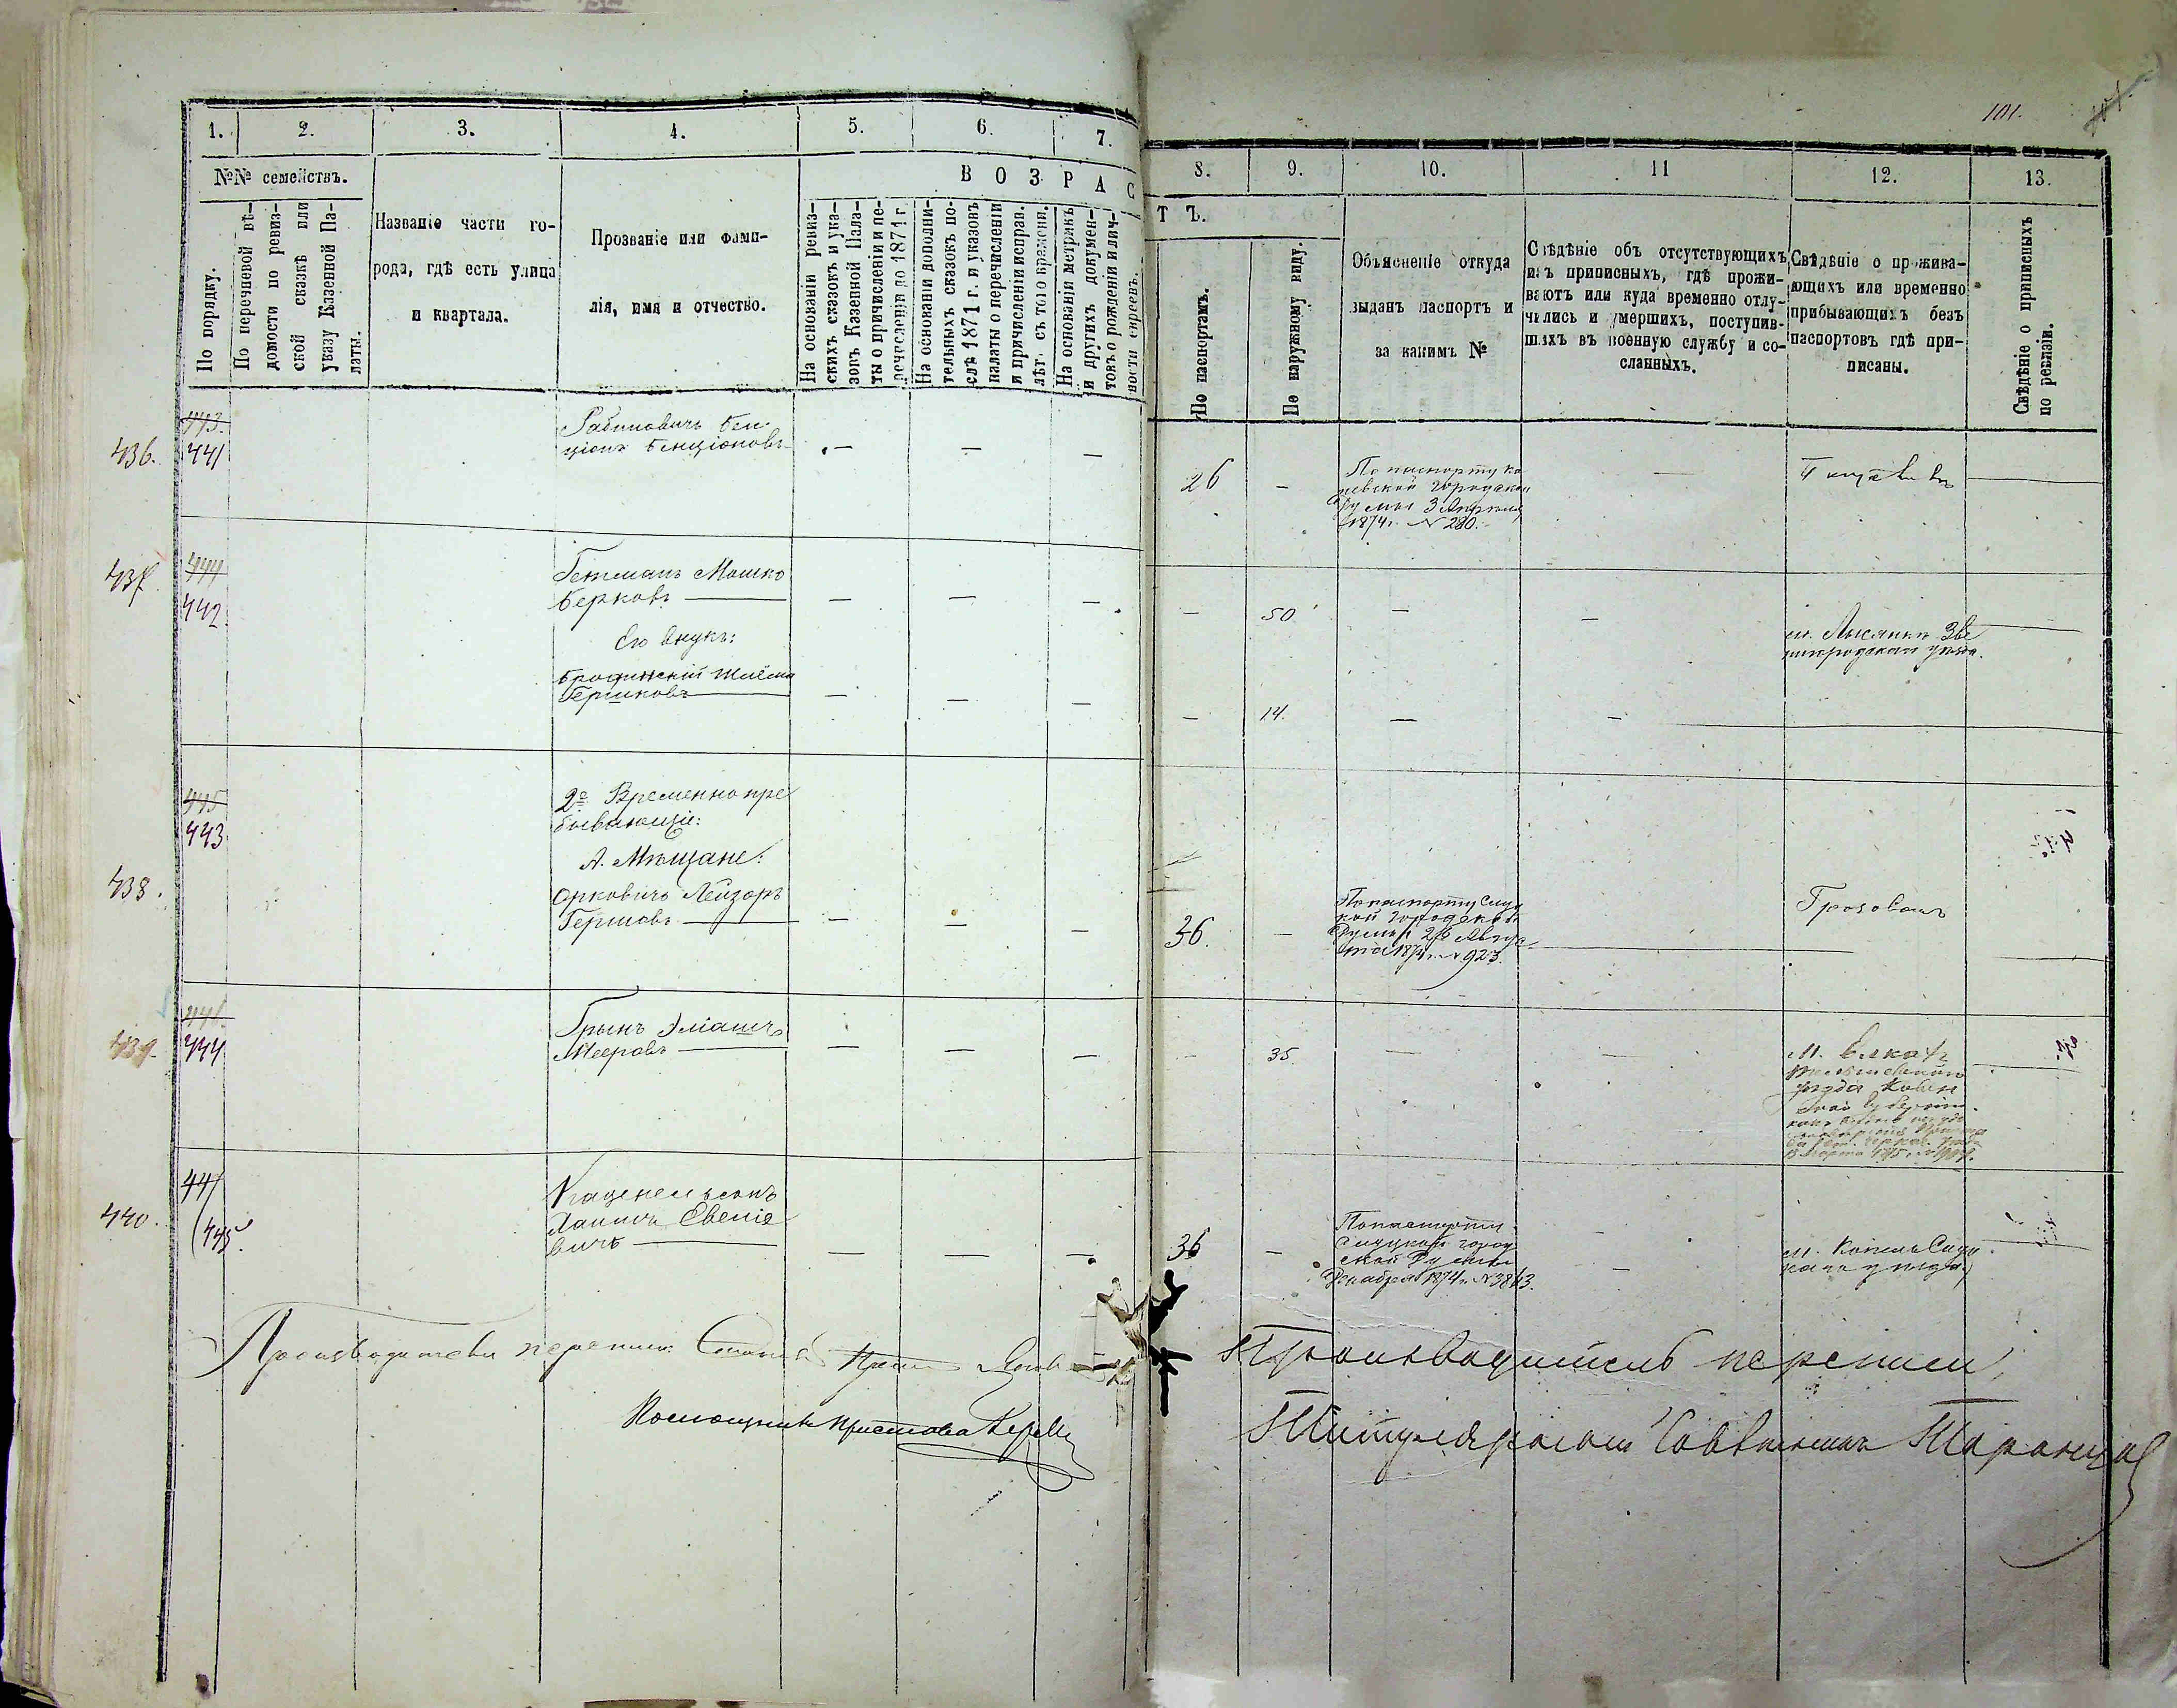 101.
1.
2.
3.
4.
5.
6.
7.
8.
9.
10.
11
12.
13.
№№ семействъ.
По порядку.
По перечневой вѣ-
домости по ревиз-
ской сказкѣ или
указу Казенной Па-
латы.
Названіе части го-
рода, гдѣ есть улица
и квартала.
Прозваніе или фами-
лія, имя и отчество.
ВОЗРАС
На основаніи ревиз-
скихъ сказокъ и ука-
зовъ Казенной Пала-
ты о причисленіи и пе-
речисленіи до 1871 г.
На основаніи дополни-
тельныхъ сказокъ по-
слѣ 1871 г. и указовъ
палаты о перечисленіи
и причисленіи исправ.
лѣтъ съ того времени.
На основаніи метрикъ
и другихъ докумен-
товъ о рожденіи и лич-
ности евреевъ.
ТЪ.
По паспортамъ.
По наружному виду.
Объясненіе откуда
выданъ паспортъ и
за какимъ №
Свѣдѣніе объ отсутствующихъ
изъ приписныхъ, гдѣ прожи-
ваютъ или куда временно отлу-
чились и умершихъ, поступив-
шихъ въ военную службу и со-
сланныхъ.
Свѣдѣніе о прожива-
ющихъ или временно
прибывающихъ безъ
паспортовъ гдѣ при-
писаны.
Свѣдѣніе о приписныхъ
по ревизіи.
436.
443.
441
Рабиновичъ Бен-
ціонъ Бенціоновъ
— — —
26 —
По паспорту Ка
невской Городской
Думы 3 Апрѣля
1874 г. № 280.
—
437
444
442
Гетманъ Мошко
Берковъ — — — —
— 50 — —
м. Лысянки Зве
нигородскаго уѣзда.
Его внукъ:
Бродянскій Шлёма
Гершковъ — — — —
— 14. — —
445
443
2е Временно пре
бывающіе:
А. Мѣщане:
438.
Орковичъ Лейзоръ
Гершовъ — — — —
36. —
По паспорту Слуц
кой Городской
Думы 26 Авгус
та 1874 г. № 923.
439.
446.
444
Грынъ Эліашъ
Мееровъ — — — —
— 35. — —
уѣзда Ковен
ской Губерніи.
440.
447
445
Каценельсонъ
— — — —
36 —
По паспорту
Слуцкой город
ской Думы
Декабря 1874 г. № 3843.
—
м. Копель Слуц
каго уѣзда
Производители переписи:
Помощникъ Пристава
Производитель переписи,
Титулярный Совѣтникъ